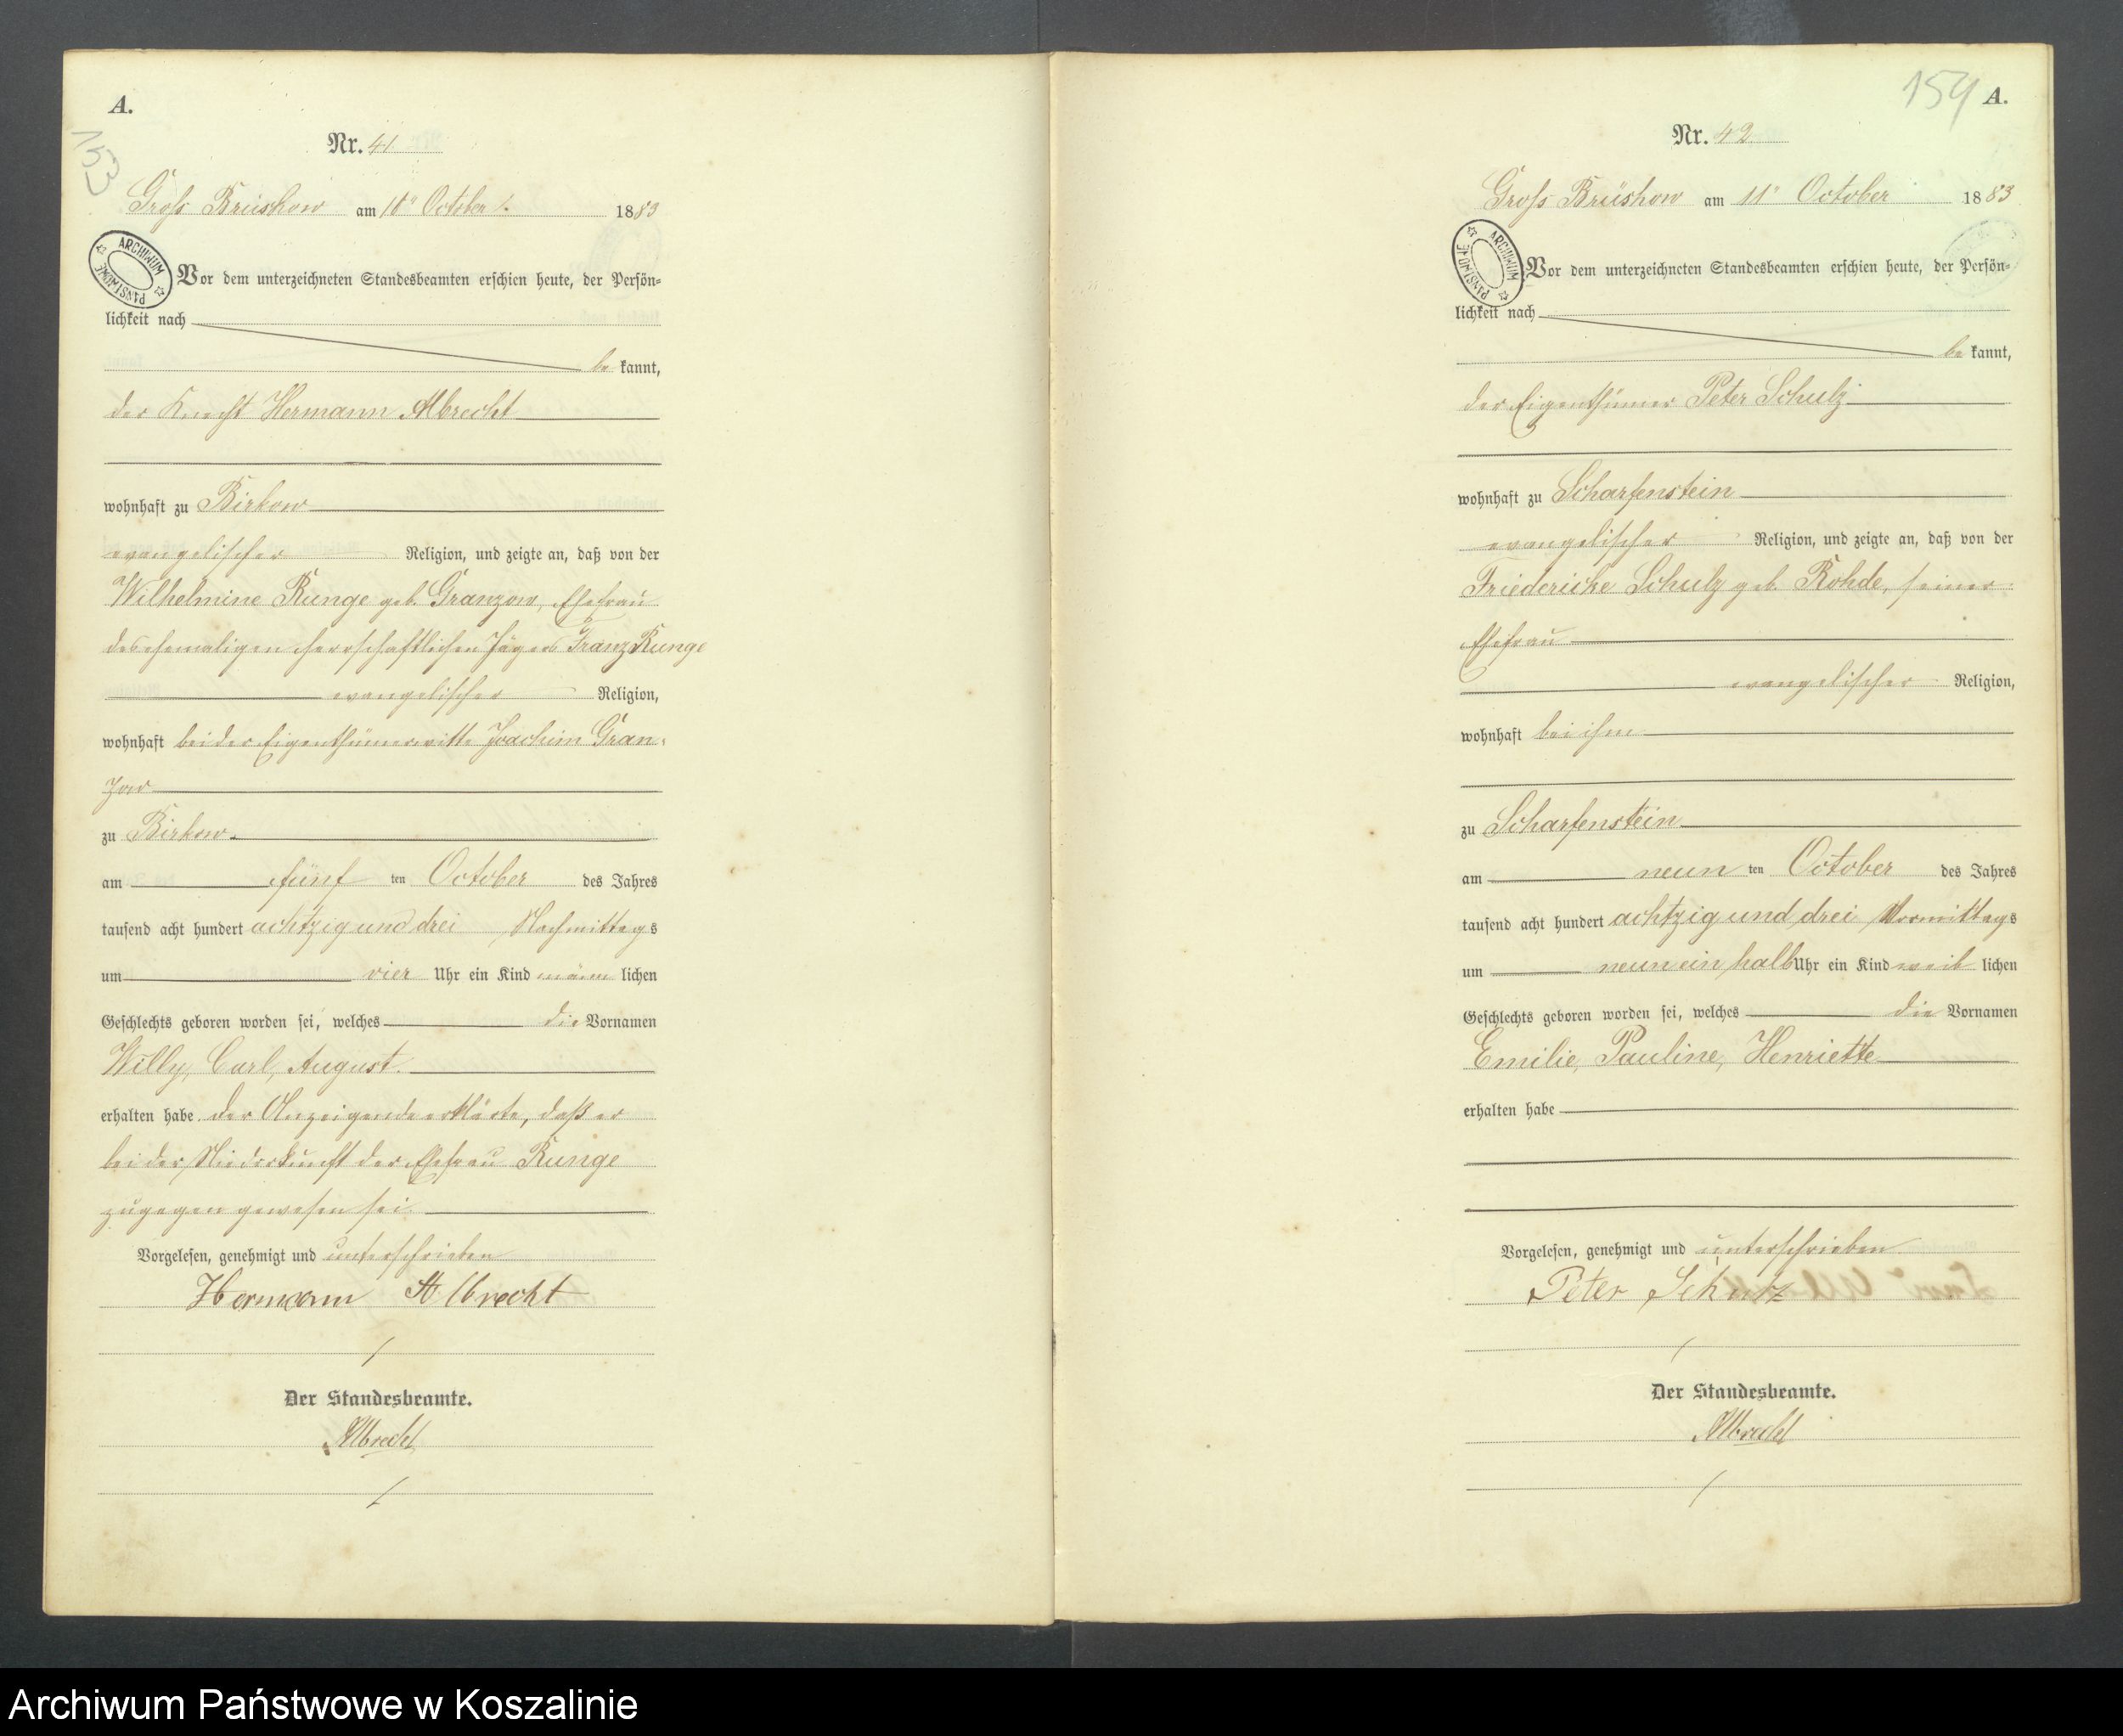 A.
153
Nr. 41.
Gross Brüskow am 10ᵗ October 1883
ARCHIWUM PAŃSTWOWE
Vor dem unterzeichneten Standesbeamten erschien heute, der Persön-
lichkeit nach
be kannt,
der Knecht Hermann Albrecht
wohnhaft zu Birkow
evangelischer Religion, und zeigte an, daß von der
Wilhelmine Runge geb. Granzow, Ehefrau
des ehemaligen herrschaftlichen Jägers Franz Runge
evangelischer Religion,
wohnhaft bei der Eigenthümerwitte Joachim Gran-
zow
zu Birkow
am fünf ten October des Jahres
tausend acht hundert achtzig und drei Nachmittags
um vier Uhr ein Kind männ lichen
Geschlechts geboren worden sei, welches die Vornamen
Willy, Carl, August
erhalten habe. Der Anzeigende erklärte, daß er
bei der Niederkunft der Ehefrau Runge
zugegen gewesen sei.
Vorgelesen, genehmigt und unterschrieben
Hermann Albrecht
Der Standesbeamte.
Albrecht
154 A.
Nr. 42
Gross Brüskow am 11ᵗ October 1883
ARCHIWUM PAŃSTWOWE
Vor dem unterzeichneten Standesbeamten erschien heute, der Persön-
lichkeit nach
be kannt,
der Eigenthümer Peter Schulz
wohnhaft zu Scharfenstein
evangelischer Religion, und zeigte an, daß von der
Friedericke Schulz geb. Rohde, seiner
Ehefrau
evangelischer Religion,
wohnhaft bei ihm
zu Scharfenstein
am neun ten October des Jahres
tausend acht hundert achtzig und drei Vormittags
um neun ein halb Uhr ein Kind weib lichen
Geschlechts geboren worden sei, welches die Vornamen
Emilie, Pauline, Henriette
erhalten habe
Vorgelesen, genehmigt und unterschrieben
Peter Schulz
Der Standesbeamte.
Albrecht
Archiwum Państwowe w Koszalinie